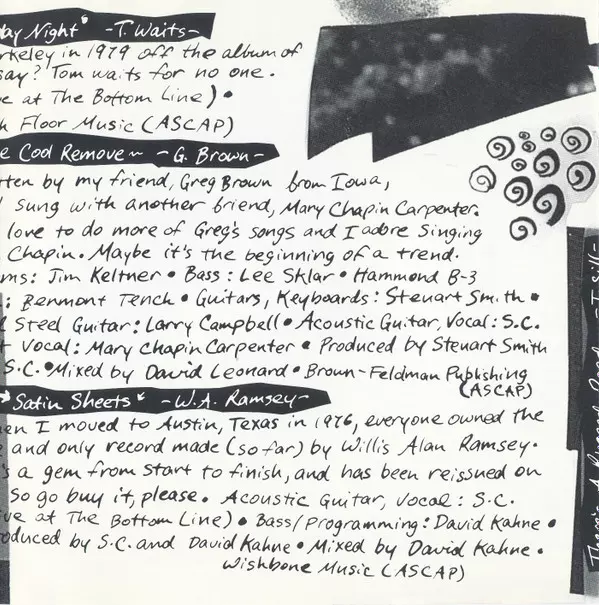 day Night" -T. Waits-
rkeley in 1979 off the album of
say? Tom waits for no one.
e at The Bottom Line) •
h Floor Music (ASCAP)
e Cool Remove~ - G. Brown-
tten by my friend, Greg Brown from Iowa,
sung with another friend, Mary Chapin Carpenter.
love to do more of Greg's songs and I adore singing
Chapin. Maybe it's the beginning of a trend.
ms: Jim Keltner • Bass: Lee Sklar • Hammond B-3
: Benmont Tench • Guitars, Keyboards: Steuart Smith •
l Steel Guitar: Larry Campbell • Acoustic Guitar, Vocal: S.C.
t Vocal: Mary Chapin Carpenter • Produced by Steuart Smith
S.C. • Mixed by David Leonard • Brown-Feldman Publishing
(ASCAP)
"Satin Sheets" -W.A. Ramsey-
en I moved to Austin, Texas in 1976, everyone owned the
e and only record made (so far) by Willis Alan Ramsey.
s a gem from start to finish, and has been reissued on
So go buy it, please. Acoustic Guitar, Vocal: S.C.
ive at The Bottom Line) • Bass/Programming: David Kahne •
oduced by S.C. and David Kahne • Mixed by David Kahne •
Wishbone Music (ASCAP)
There's A Rugged Road -J. Sill-